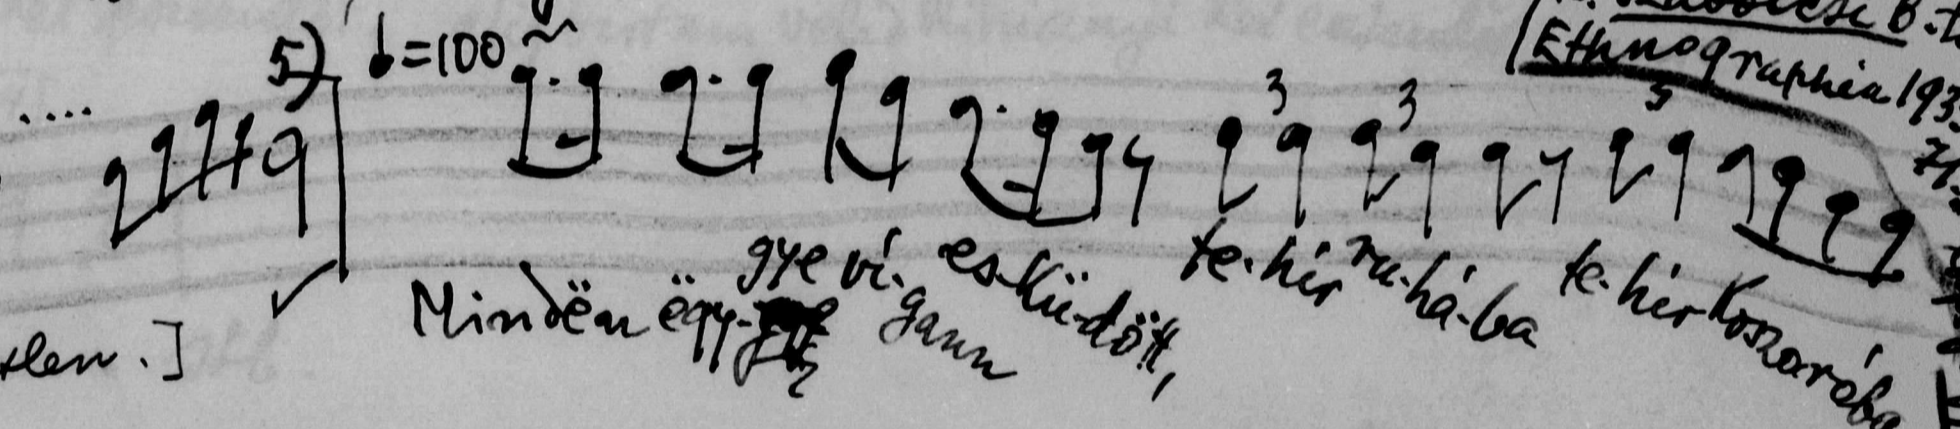 5) ♩=100
Ethnographia 193
3 3 3
Mindën ëgy- gye vi- gann es- kü- dött, te- hir ru- há- ba te- hir koszaróba